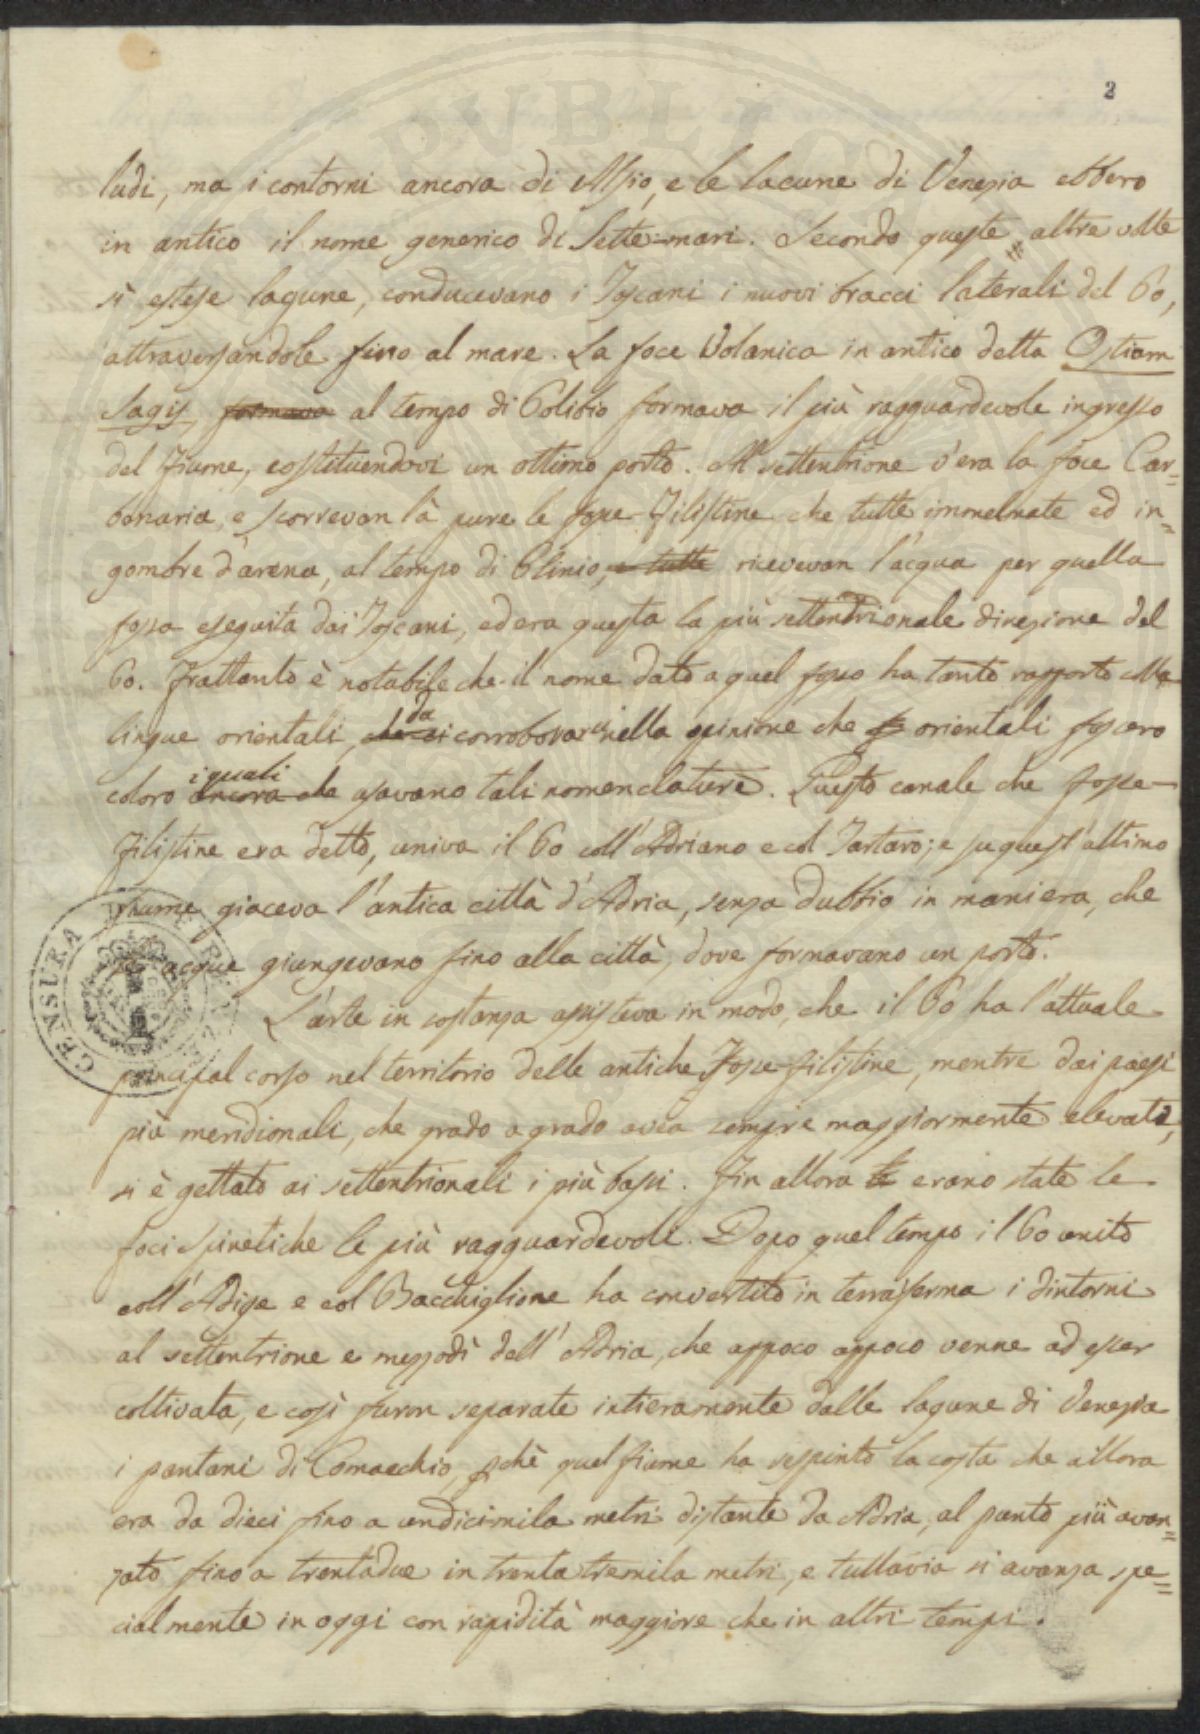 2
ludi, ma i contorni ancora di Alsio, e le lacune di Venezia ebbero
in antico il nome generico di Sette-mari. Secondo queste altre volte
sì estese lagune, conducevano i Toscani i nuovi bracci laterali del Po,
attraversandole fino al mare. La foce Volanica in antico detta Ostiam
Sagis, formava al tempo di Polibio formava il più ragguardevole ingresso
del Fiume, costituendovi un ottimo porto. Al settentrione v'era la foce Car=
bonaria, e scorrevan là pure le fosse Filistine che tutte immelmate ed in=
gombre d'arena, al tempo di Plinio, e tutte ricevevan l'acqua per quella
fossa eseguita dai Toscani, ed era questa la più settentrionale direzione del
Po. Frattanto è notabile che il nome dato a quel fosso ha tanto rapporto alle
lingue orientali, da corroborarci nella opinione che orientali fossero
coloro i quali ancora che usavano tali nomenclature. Questo canale che fosse-
Filistine era detto, univa il Po coll'Adriano e col Tartaro; e su quest'ultimo
fiume giaceva l'antica città d'Adria, senza dubbio in maniera, che
le acque giungevano fino alla città, dove formavano un porto.
L'arte in sostanza assisteva in modo, che il Po ha l'attuale
principal corso nel territorio delle antiche Fosse-filistine, mentre dai paesi
più meridionali, che grado a grado avea sempre maggiormente elevati,
si è gettato ai settentrionali i più bassi. Fin allora le erano state le
foci Spinetiche le più ragguardevoli. Dopo quel tempo il Po unito
coll'Adige e col Bacchiglione ha convertito in terraferma i dintorni
al settentrione e mezzodì dell'Adria, che appoco appoco venne ad esser
coltivata, e così furon separate intieramente dalle lagune di Venezia
i pantani di Comacchio, pchè quel fiume ha respinto la costa che allora
era da dieci fino a undicimila metri distante da Adria, al punto più avan=
zato fino a trentadue in trentatremila metri, e tuttavia si avanza spe=
cialmente in oggi con rapidità maggiore che in altri tempi.
CENSURA